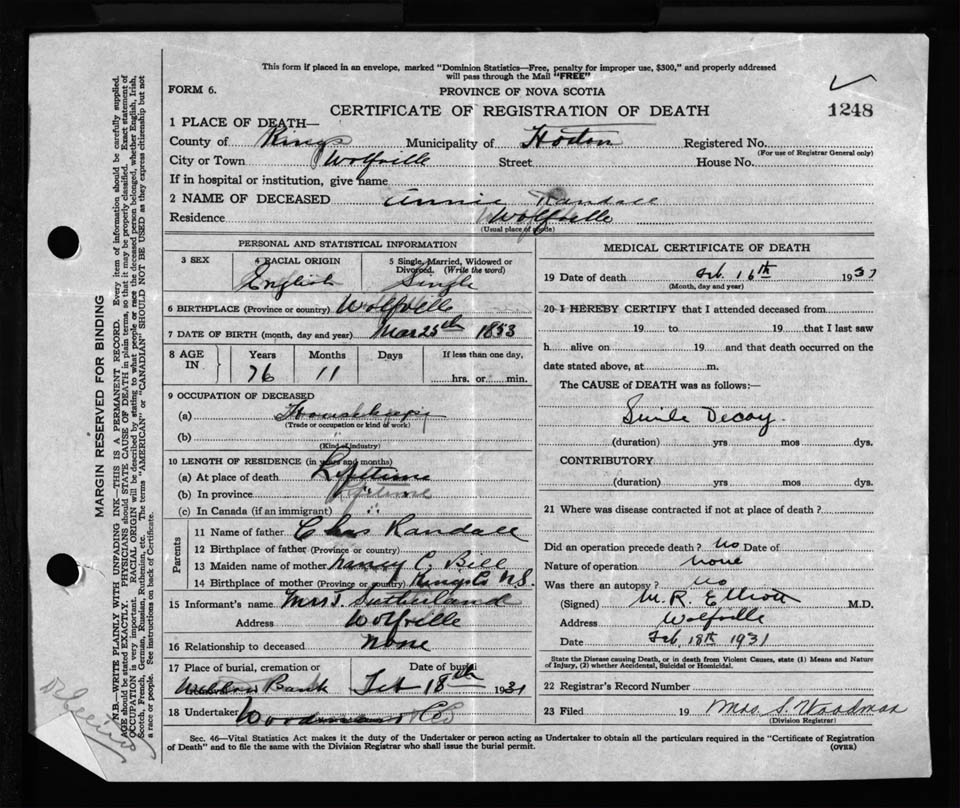 This form if placed in an envelope, marked "Dominion Statistics—Free, penalty for improper use, $300," and properly addressed
will pass through the Mail "FREE"
FORM 6.
PROVINCE OF NOVA SCOTIA
CERTIFICATE OF REGISTRATION OF DEATH
1248
1 PLACE OF DEATH—
County of Kings Municipality of Horton Registered No.
(For use of Registrar General only)
City or Town Wolfville Street House No.
If in hospital or institution, give name
2 NAME OF DECEASED Annie Randall
Residence Wolfville
(Usual place of abode)
PERSONAL AND STATISTICAL INFORMATION
3 SEX 4 RACIAL ORIGIN English 5 Single, Married, Widowed or Divorced. (Write the word) Single
6 BIRTHPLACE (Province or country) Wolfville
7 DATE OF BIRTH (month, day and year) Mar 25th 1853
8 AGE IN Years 76 Months 11 Days If less than one day, hrs. or min.
9 OCCUPATION OF DECEASED
(a) Housekeeping
(Trade or occupation or kind of work)
(b)
(Kind of industry)
10 LENGTH OF RESIDENCE (in years and months)
(a) At place of death Lifetime
(b) In province Lifetime
(c) In Canada (if an immigrant) "
Parents
11 Name of father Chas Randall
12 Birthplace of father (Province or country)
13 Maiden name of mother Nancy C. Bill
14 Birthplace of mother (Province or country) Kings Co N.S.
15 Informant's name Mrs T. Sutherland
Address Wolfville
16 Relationship to deceased none
17 Place of burial, cremation or Date of burial
Bank Feb 18th 1931
18 Undertaker Woodmans & Co
MEDICAL CERTIFICATE OF DEATH
19 Date of death Feb. 16th 1931
(Month, day and year)
20 I HEREBY CERTIFY that I attended deceased from
19 to 19 that I last saw
h alive on 19 and that death occurred on the
date stated above, at m.
The CAUSE of DEATH was as follows:—
Senile Decay.
(duration) yrs mos dys.
CONTRIBUTORY
(duration) yrs mos dys.
21 Where was disease contracted if not at place of death?
Did an operation precede death? no Date of
Nature of operation none
Was there an autopsy? no
(Signed) M. R. Elliott M.D.
Address Wolfville
Date Feb. 18th 1931
State the Disease causing Death, or in death from Violent Causes, state (1) Means and Nature
of Injury, (2) whether Accidental, Suicidal or Homicidal.
22 Registrar's Record Number
23 Filed 19 Mrs. S. Woodman
(Division Registrar)
Sec. 46—Vital Statistics Act makes it the duty of the Undertaker or person acting as Undertaker to obtain all the particulars required in the "Certificate of Registration
of Death" and to file the same with the Division Registrar who shall issue the burial permit.
(OVER)
MARGIN RESERVED FOR BINDING
N.B.—WRITE PLAINLY WITH UNFADING INK—THIS IS A PERMANENT RECORD. Every item of information should be carefully supplied.
AGE should be stated EXACTLY. PHYSICIANS should STATE CAUSE OF DEATH in plain terms, so that it may be properly classified. Exact statement of
OCCUPATION is very important. RACIAL ORIGIN will be described by stating to what people or race the deceased person belonged, whether English, Irish,
Scotch, French, German, Russian, Ruthenian, etc. The terms "AMERICAN" or "CANADIAN" SHOULD NOT BE USED as they express citizenship but not
a race or people. See instructions on back of Certificate.